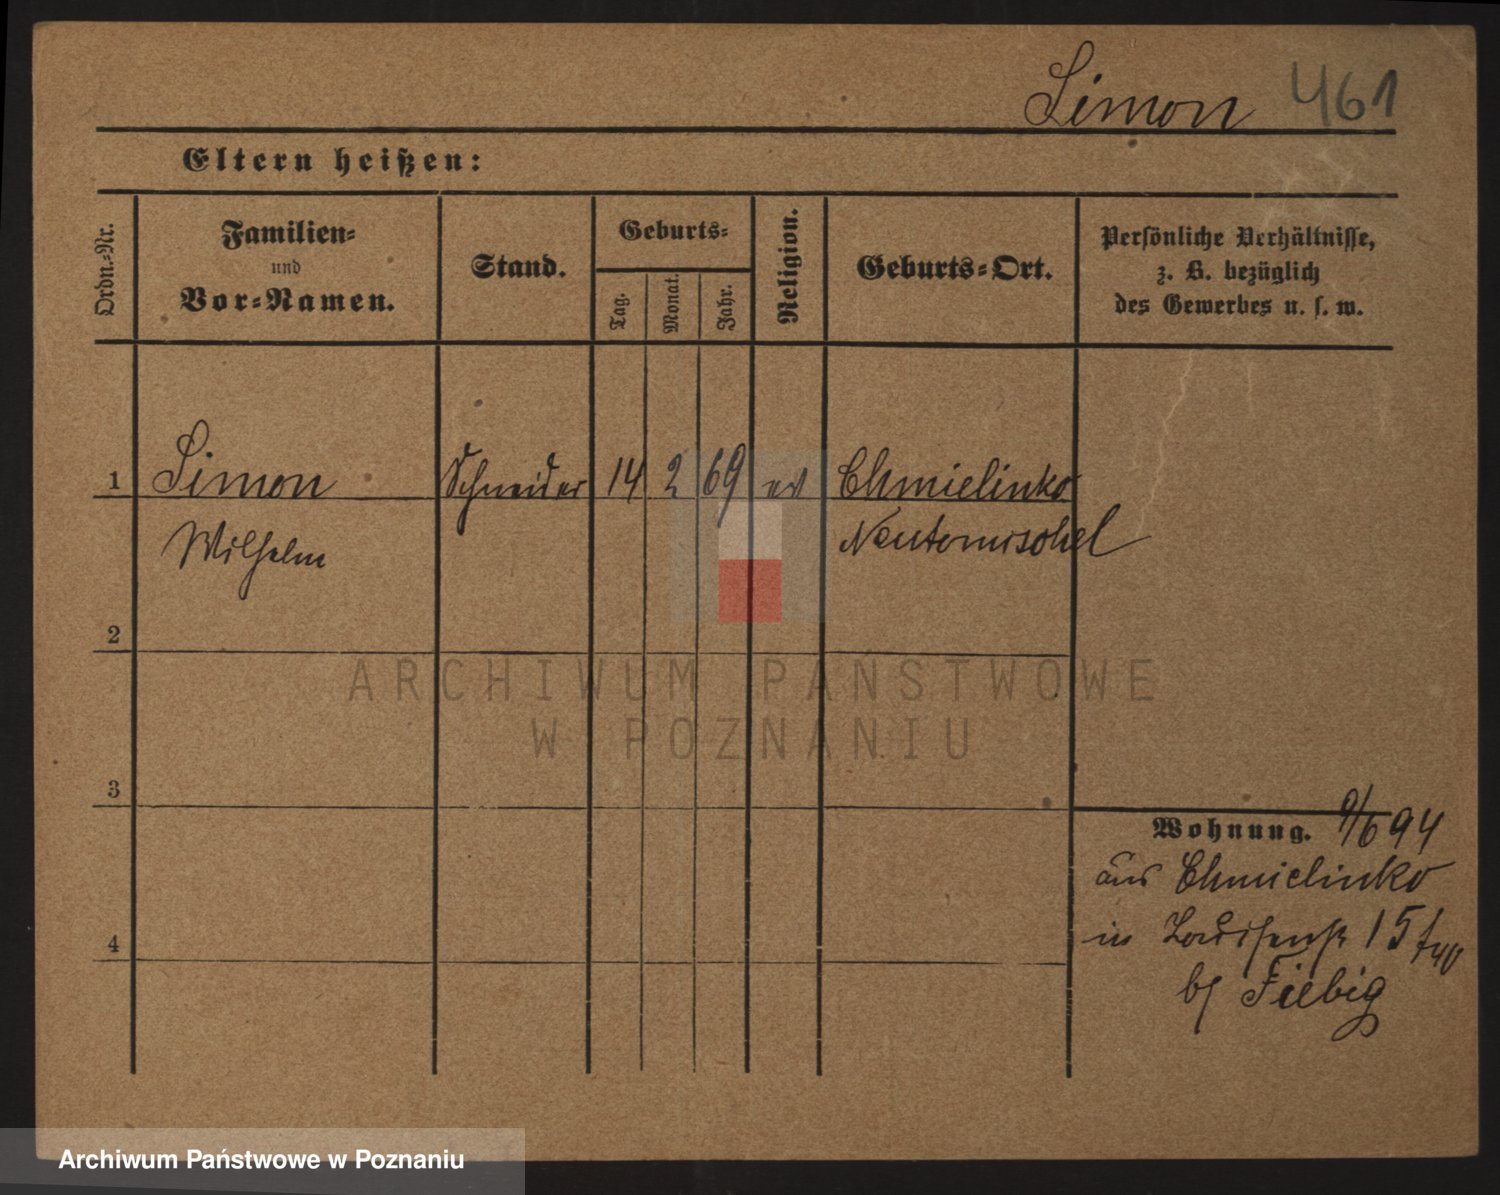 Simon 461
Eltern heißen:
Ordn.-Nr.
Familien-
und
Vor-Namen.
Stand.
Geburts-
Tag.
Monat.
Jahr.
Religion.
Geburts-Ort.
Persönliche Verhältnisse,
z. B. bezüglich
des Gewerbes u. s. w.
1 Simon Schneider 14 2 69 ev Chmielinko
Wilhelm Neutomischel
2
ARCHIWUM PAŃSTWOWE
W POZNANIU
3
Wohnung. 9/6 94
aus Chmielinko
in 15
4
b/ Fiebig
Archiwum Państwowe w Poznaniu